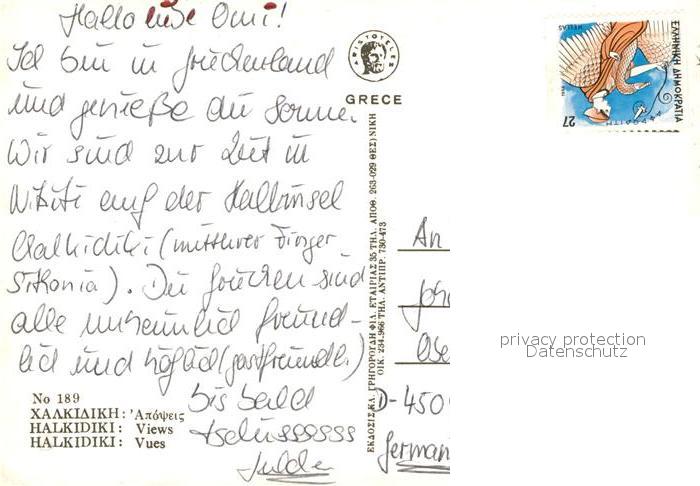 Hallo liebe Omi!
Ich bin in Griechenland
und genieße die Sonne.
Wir sind zur Zeit in
Nikiti auf der Halbinsel
Chalkidiki (mittlerer Finger
Sithonia). Die Griechen sind
alle unheimlich freund-
lich und höflich (gastfreundl.)
bis bald
tschüssssss
ARISTOTELES
GRECE
ΕΛΛΗΝΙΚΗ ΔΗΜΟΚΡΑΤΙΑ
HELLAS
27
ΕΚΔΟΣΙΣ ΚΛ. ΓΡΗΓΟΡΟΥΔΗ ΦΙΛ. ΕΤΑΙΡΙΑΣ 35 ΤΗΛ. ΑΠΟΘ. 263-029 ΘΕΣ)ΝΙΚΗ
ΟΙΚ. 234.966 ΤΗΛ. ΑΝΤΙΠΡ. 730-473
An
D-450
German
privacy protection
Datenschutz
No 189
ΧΑΛΚΙΔΙΚΗ: Ἀπόψεις
HALKIDIKI: Views
HALKIDIKI: Vues